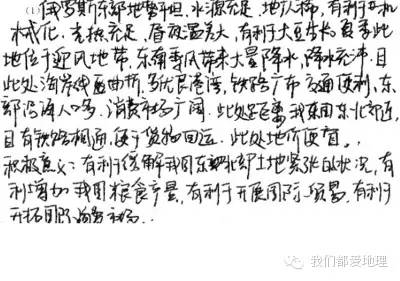 俄罗斯东部地势平坦，水源充足，地广人稀，有利于大机
械化。光热充足，昼夜温差大，有利于大豆生长。夏季此
地位于迎风地带，东南季风带来大量降水，降水充沛。且
此处海岸线曲折，多优良港湾，铁路广布，交通便利，东
部沿海人口多，消费市场广阔。此处距离我国东北部近，
且有铁路相通，便于货物回运。此处地价便宜。
积极意义：有利于缓解我国东北部土地紧张的状况，有
利增加我国粮食产量，有利于开展国际贸易，有利于
开拓国际海外市场。
我们都爱地理